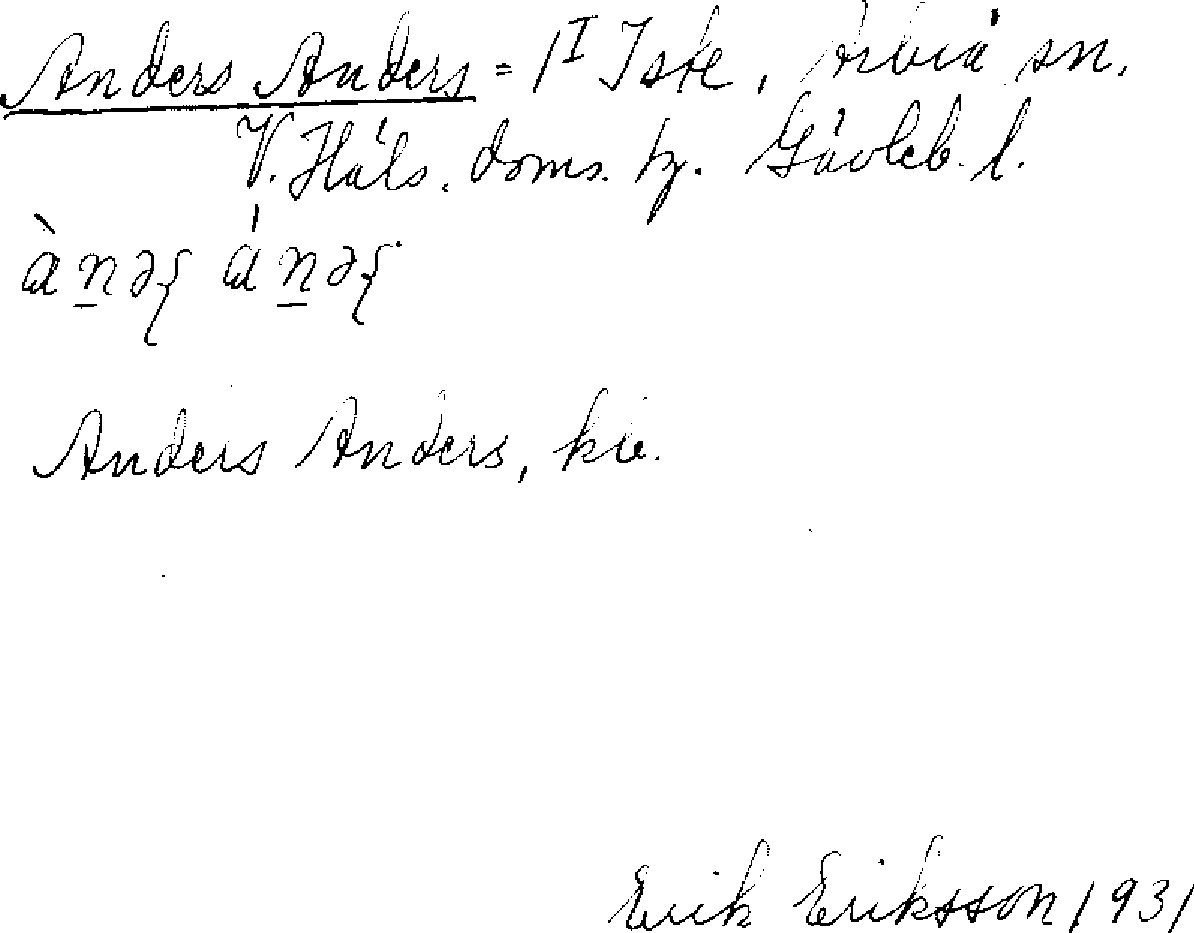 Anders Anders = 1ᴵ Iste, Arbrå sn.
V. Häls. doms. hg. Gävleb. l.
àn̲əʃ án̲əʃ
Anders Anders,
Erik Eriksson 1931